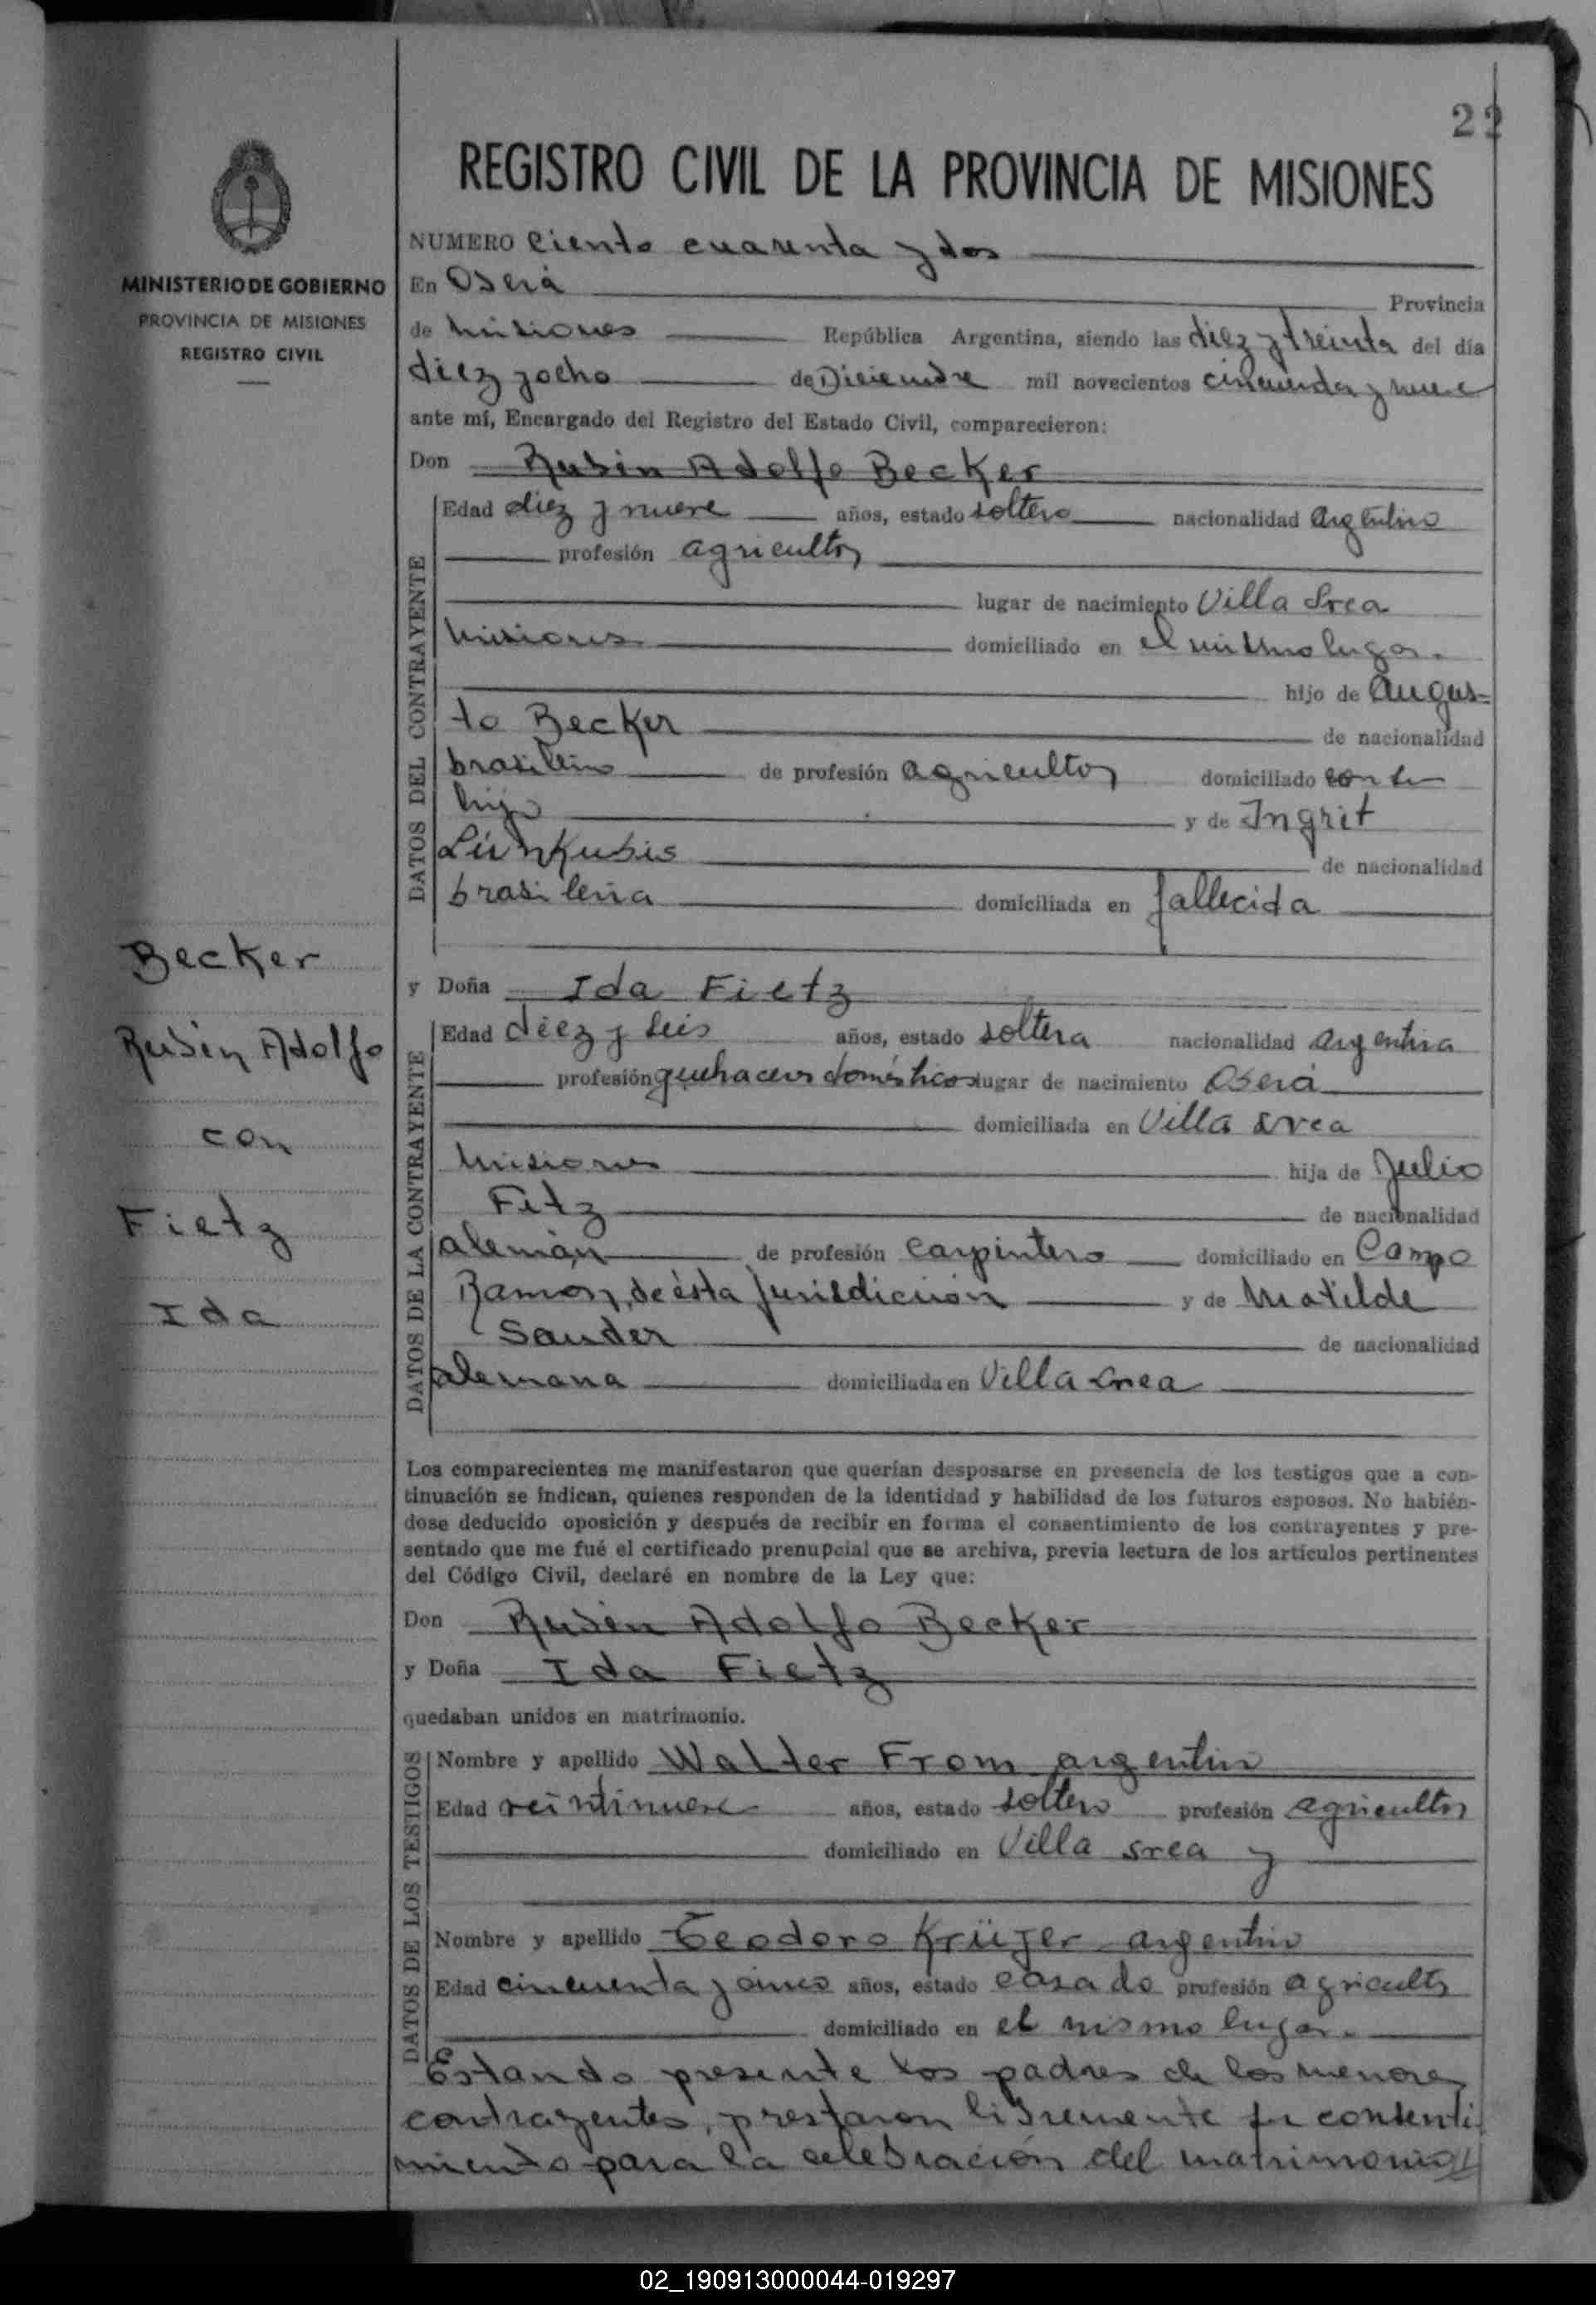 22
REGISTRO CIVIL DE LA PROVINCIA DE MISIONES
MINISTERIO DE GOBIERNO
PROVINCIA DE MISIONES
REGISTRO CIVIL
NUMERO ciento cuarenta y dos
En Oberá Provincia
de Misiones República Argentina, siendo las diez y treinta del día
diez y ocho de Diciembre mil novecientos cincuenta y nueve
ante mí, Encargado del Registro del Estado Civil, comparecieron:
Don Rubén Adolfo Becker
DATOS DEL CONTRAYENTE
Edad diez y nueve años, estado soltero nacionalidad argentino
profesión agricultor
lugar de nacimiento Villa Svea
Misiones domiciliado en el mismo lugar.
hijo de Augus=
to Becker de nacionalidad
brasilero de profesión agricultor domiciliado con su
hijo y de Ingrit
de nacionalidad
brasilera domiciliada en fallecida
Becker
Rubén Adolfo
con
Fietz
Ida
y Doña Ida Fietz
DATOS DE LA CONTRAYENTE
Edad diez y seis años, estado soltera nacionalidad argentina
profesión quehaceres domésticos lugar de nacimiento Oberá
domiciliada en Villa Svea
Misiones hija de Julio
Fitz de nacionalidad
alemán de profesión carpintero domiciliado en Campo
Ramón, de ésta jurisdicción y de Matilde
Sander de nacionalidad
alemana domiciliada en Villa Svea
Los comparecientes me manifestaron que querían desposarse en presencia de los testigos que a con-
tinuación se indican, quienes responden de la identidad y habilidad de los futuros esposos. No habién-
dose deducido oposición y después de recibir en forma el consentimiento de los contrayentes y pre-
sentado que me fué el certificado prenupcial que se archiva, previa lectura de los artículos pertinentes
del Código Civil, declaré en nombre de la Ley que:
Don Rubén Adolfo Becker
y Doña Ida Fietz
quedaban unidos en matrimonio.
DATOS DE LOS TESTIGOS
Nombre y apellido Walter From argentino
Edad veintinueve años, estado soltero profesión agricultor
domiciliado en Villa Svea y
Nombre y apellido Teodoro Krüger argentino
Edad cincuenta y cinco años, estado casado profesión agricultor
domiciliado en el mismo lugar.
Estando presente los padres de los menores
contrayentes, prestaron libremente su consenti
miento para la celebración del matrimonio
02_190913000044-019297